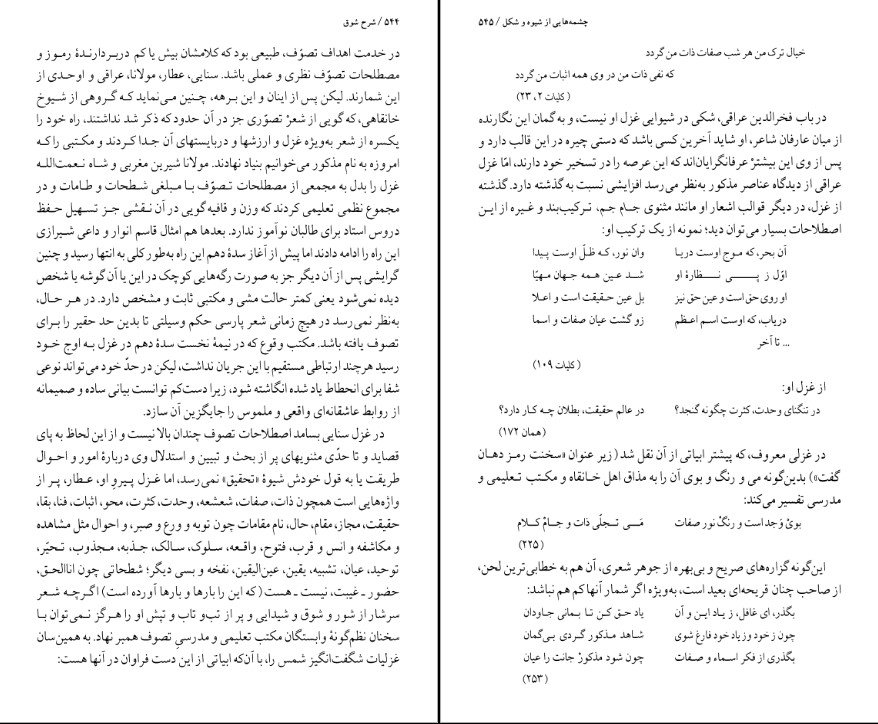 ۵۴۴ / شرح شوق
در خدمت اهداف تصوّف، طبیعی بود که کلامشان بیش یا کم دربردارندهٔ رموز و
مصطلحات تصوّف نظری و عملی باشد. سنایی، عطار، مولانا، عراقی و اوحدی از
این شمارند. لیکن پس از اینان و این برهه، چنین می‌نماید که گروهی از شیوخ
خانقاهی، که گویی از شعرْ تصوّری جز در آن حدود که ذکر شد نداشتند، راه خود را
یکسره از شعر به‌ویژه غزل و ارزشها و دربایستهای آن جدا کردند و مکتبی را که
امروزه به نام مذکور می‌خوانیم بنیاد نهادند. مولانا شیرین مغربی و شاه نعمت‌الله
غزل را بدل به مجمعی از مصطلحات تصوّف با مبلغی شطحات و طامات و در
مجموع نظمی تعلیمی کردند که وزن و قافیه گویی در آن نقشی جز تسهیل حفظ
دروس استاد برای طالبان نوآموز ندارد. بعدها هم امثال قاسم انوار و داعی شیرازی
این راه را ادامه دادند اما پیش از آغاز سدهٔ دهم این راه به‌طور کلی به انتها رسید و چنین
گرایشی پس از آن دیگر جز به صورت رگه‌هایی کوچک در این یا آن گوشه یا شخص
دیده نمی‌شود یعنی کمتر حالت مشی و مکتبی ثابت و مشخص دارد. در هر حال،
به‌نظر نمی‌رسد در هیچ زمانی شعر پارسی حکم وسیلتی تا بدین حد حقیر را برای
تصوف یافته باشد. مکتب وقوع که در نیمهٔ نخست سدهٔ دهم در غزل به اوج خود
رسید هرچند ارتباطی مستقیم با این جریان نداشت، لیکن در حدّ خود می‌تواند نوعی
شفا برای انحطاط یاد شده انگاشته شود، زیرا دست‌کم توانست بیانی ساده و صمیمانه
از روابط عاشقانه‌ای واقعی و ملموس را جایگزین آن سازد.
در غزل سنایی بسامد اصطلاحات تصوف چندان بالا نیست و از این لحاظ به پای
قصاید و تا حدّی مثنویهای پر از بحث و تبیین و استدلال وی دربارهٔ امور و احوال
طریقت یا به قول خودش شیوهٔ «تحقیق» نمی‌رسد، اما غزل پیروِ او، عطار، پر از
واژه‌هایی است همچون ذات، صفات، شعشعه، وحدت، کثرت، محو، اثبات، فنا، بقا،
حقیقت، مجاز، مقام، حال، نام مقامات چون توبه و ورع و صبر، و احوال مثل مشاهده
و مکاشفه و انس و قرب، فتوح، واقعه، سلوک، سالک، جذبه، مجذوب، تحیّر،
توحید، عیان، تشبیه، یقین، عین‌الیقین، نفخه و بسی دیگر؛ شطحاتی چون اناالحق،
حضور ـ غیبت، نیست ـ هست (که این را بارها و بارها آورده است) اگرچه شعر
سرشار از شور و شوق و شیدایی و پر از تب‌وتاب و تپش او را هرگز نمی‌توان با
سخنان نظم‌گونهٔ وابستگان مکتب تعلیمی و مدرسیِ تصوف همبر نهاد. به همین‌سان
غزلیات شگفت‌انگیز شمس را، با آن‌که ابیاتی از این دست فراوان در آنها هست:
چشمه‌هایی از شیوه و شکل / ۵۴۵
خیال ترک من هر شب صفات ذات من گردد
که نفی ذات من در وی همه اثبات من گردد
(کلیات ۲، ۲۳)
در باب فخرالدین عراقی، شکی در شیوایی غزل او نیست، و به گمان این نگارنده
از میان عارفان شاعر، او شاید آخرین کسی باشد که دستی چیره در این قالب دارد و
پس از وی این بیشترْ عرفانگرایان‌اند که این عرصه را در تسخیر خود دارند، امّا غزل
عراقی از دیدگاه عناصر مذکور به‌نظر می‌رسد افزایشی نسبت به گذشته دارد. گذشته
از غزل، در دیگر قوالب اشعار او مانند مثنوی جام جم، ترکیب‌بند و غیره از این
اصطلاحات بسیار می‌توان دید؛ نمونه از یک ترکیب او:
آن بحر، که موج اوست دریا وان نور، که ظلّ اوست پیدا
اوّل ز پــی نــظارهٔ او شد عین همه جهان مهیّا
او روی حق است و عین حق نیز بل عین حقیقت است و اعلا
دریاب، که اوست اسم اعظم زو گشت عیان صفات و اسما
... تا آخر
(کلیات ۱۰۹)
از غزل او:
در تنگنای وحدت، کثرت چگونه گنجد؟ در عالم حقیقت، بطلان چه کار دارد؟
(همان ۱۷۲)
در غزلی معروف، که پیشتر ابیاتی از آن نقل شد (زیر عنوان «سخنت رمز دهان
گفت») بدین‌گونه می و رنگ و بوی آن را به مذاق اهل خانقاه و مکتب تعلیمی و
مدرسی تفسیر می‌کند:
بویْ وَجد است و رنگْ نور صفات مَـی تـجلّی ذات و جامْ کلام
(۲۲۵)
این‌گونه گزاره‌های صریح و بی‌بهره از جوهر شعری، آن هم به خطابی‌ترین لحن،
از صاحب چنان قریحه‌ای بعید است، به‌ویژه اگر شمار آنها کم هم نباشد:
بگذر، ای غافل، ز یاد این و آن یاد حق کن تا بمانی جاودان
چون زخود وز یاد خود فارغ شوی شاهد مذکور گردی بی‌گمان
بگذری از فکر اسماء و صفات چون شود مذکورْ جانت را عیان
(۲۵۳)